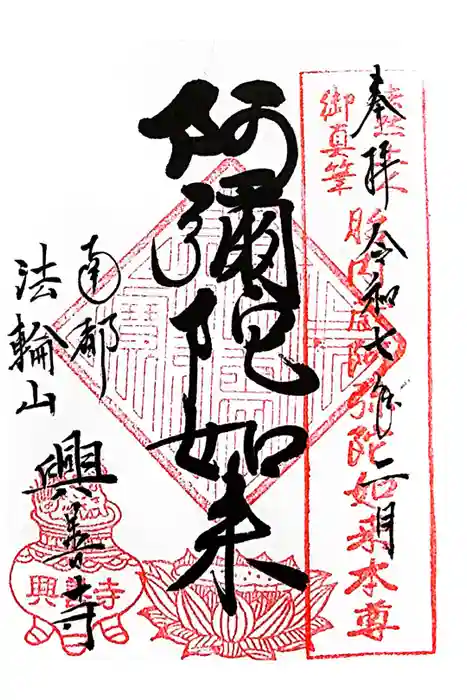 奉拝 令和七年二月
御真筆
胎内仏阿弥陀如来本尊
阿彌陀如来
南都
法輪山
興善寺
興善寺